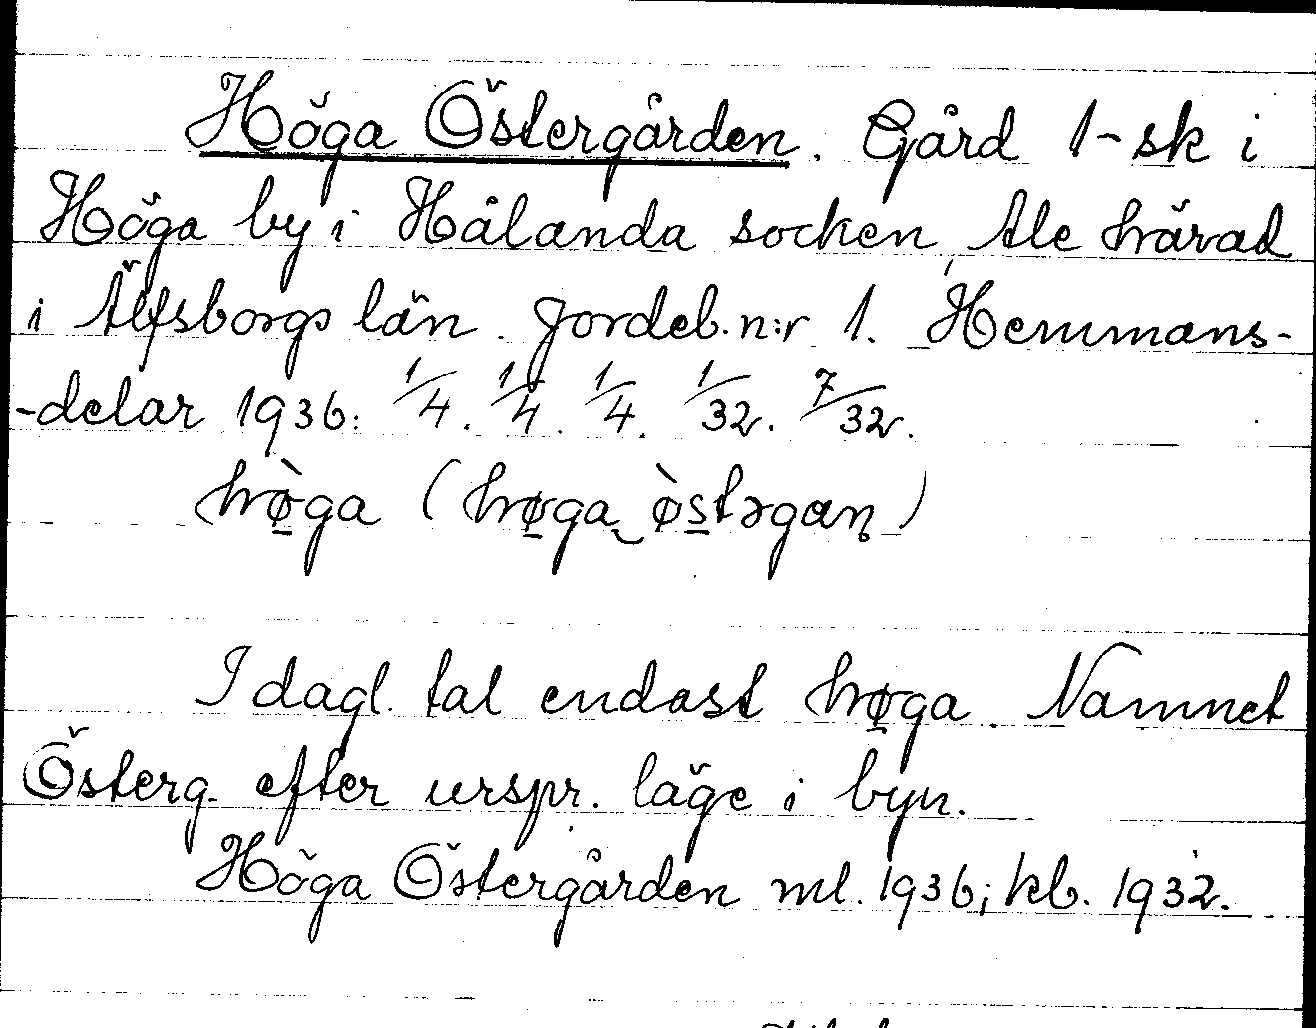 Höga Östergården. Gård 1-sk i
Höga by i Hålanda socken, Ale härad
i Älfsborgs län. Jordeb. n:r 1. Hemmans-
-delar 1936: 1/4. 1/4. 1/4. 1/32. 7/32.
hø̱̀ga (hø̱ga‿ø̀s̱təgaɳ)
I dagl. tal endast hø̱ga. Namnet
Österg. efter urspr. läge i byn.
Höga Östergården ml. 1936; kb. 1932.